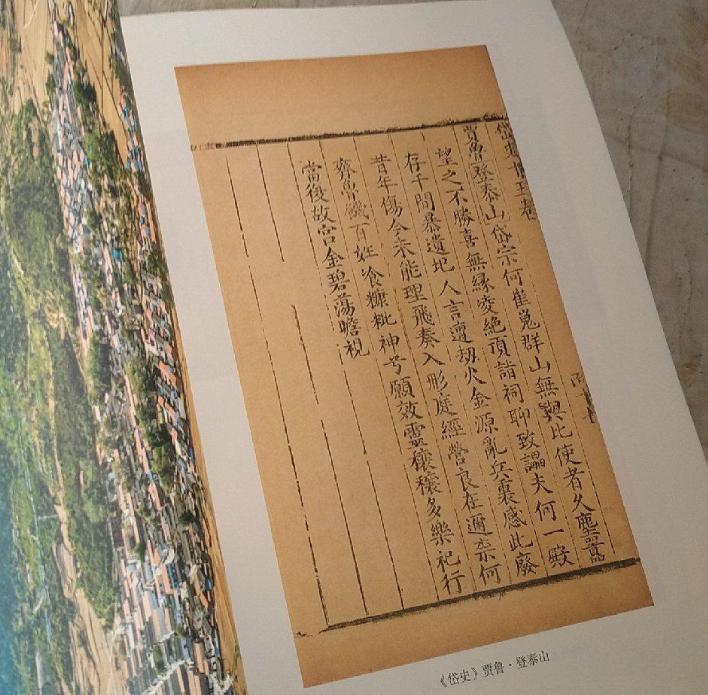 賈魯登泰山岱宗何崔嵬群山無與比使者久塵囂
望之不勝喜無緣凌絕頂詣祠聊致謁夫何一殿
存千間暴遺圯人言遭刼火金源亂兵裏感此廢
昔年傷今未能理飛奏入彤庭經營良在邇柰何
齊魯饑百姓飡糠粃神兮願效靈穰穰多樂祀行
當復故宫金碧蕩瞻視
《岱史》贾鲁·登泰山